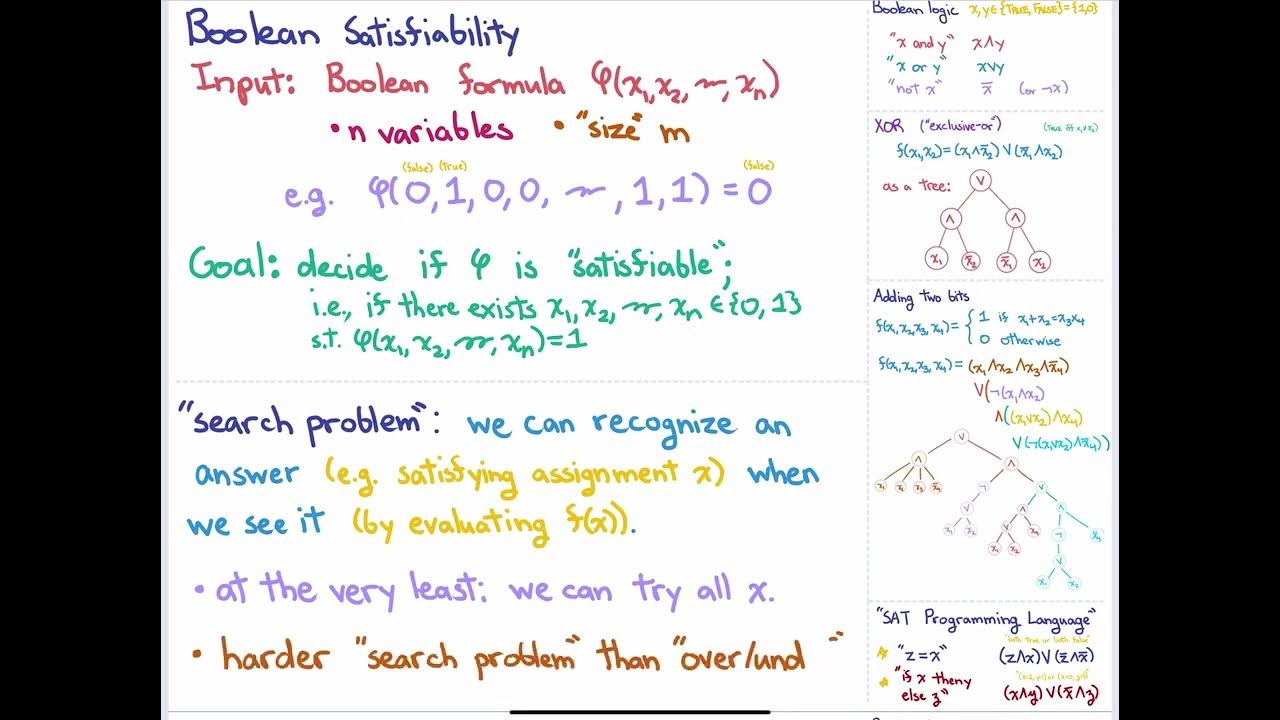 Boolean Satisfiability
Input: Boolean formula φ(x₁,x₂,~,xₙ)
• n variables • "size" m
(false) (true) (false)
e.g. φ(0,1,0,0, ~ ,1,1) = 0
Goal: decide if φ is "satisfiable";
i.e., if there exists x₁,x₂,~,xₙ ∈{0,1}
s.t. φ(x₁,x₂,~,xₙ)=1
"search problem": we can recognize an
answer (e.g. satisfying assignment x) when
we see it (by evaluating f(x)).
• at the very least: we can try all x.
• harder "search problem" than "over/und "
Boolean logic x,y∈{TRUE, FALSE}={1,0}
"x and y" x∧y
"x or y" x∨y
"not x" x̅ (or ¬x)
XOR ("exclusive-or") (TRUE iff x₁≠x₂)
f(x₁,x₂)=(x₁∧x̅₂)∨(x̅₁∧x₂)
as a tree:
∨
∧ ∧
x₁ x̅₂ x̅₁ x₂
Adding two bits
f(x₁,x₂,x₃,x₄)= { 1 if x₁+x₂=x₃x₄
0 otherwise
f(x₁,x₂,x₃,x₄)= (x₁∧x₂∧x₃∧x̅₄)
∨(¬(x₁∧x₂)
∧((x₁∨x₂)∧x₄)
∨(¬(x₁∨x₂)∧x̅₄))
∨
∧ ∧
x₁ x₂ x₃ x̅₄ ¬ ∨
∨ ∧ ∧
∨ x₄ ¬
x₁ x₂ ∨
x₁ x₂
"SAT Programming Language"
"both true or both false"
"z=x" (z∧x)∨(z̅∧x̅)
"if x then y (x∧y)∨(x̅∧z)
else z"